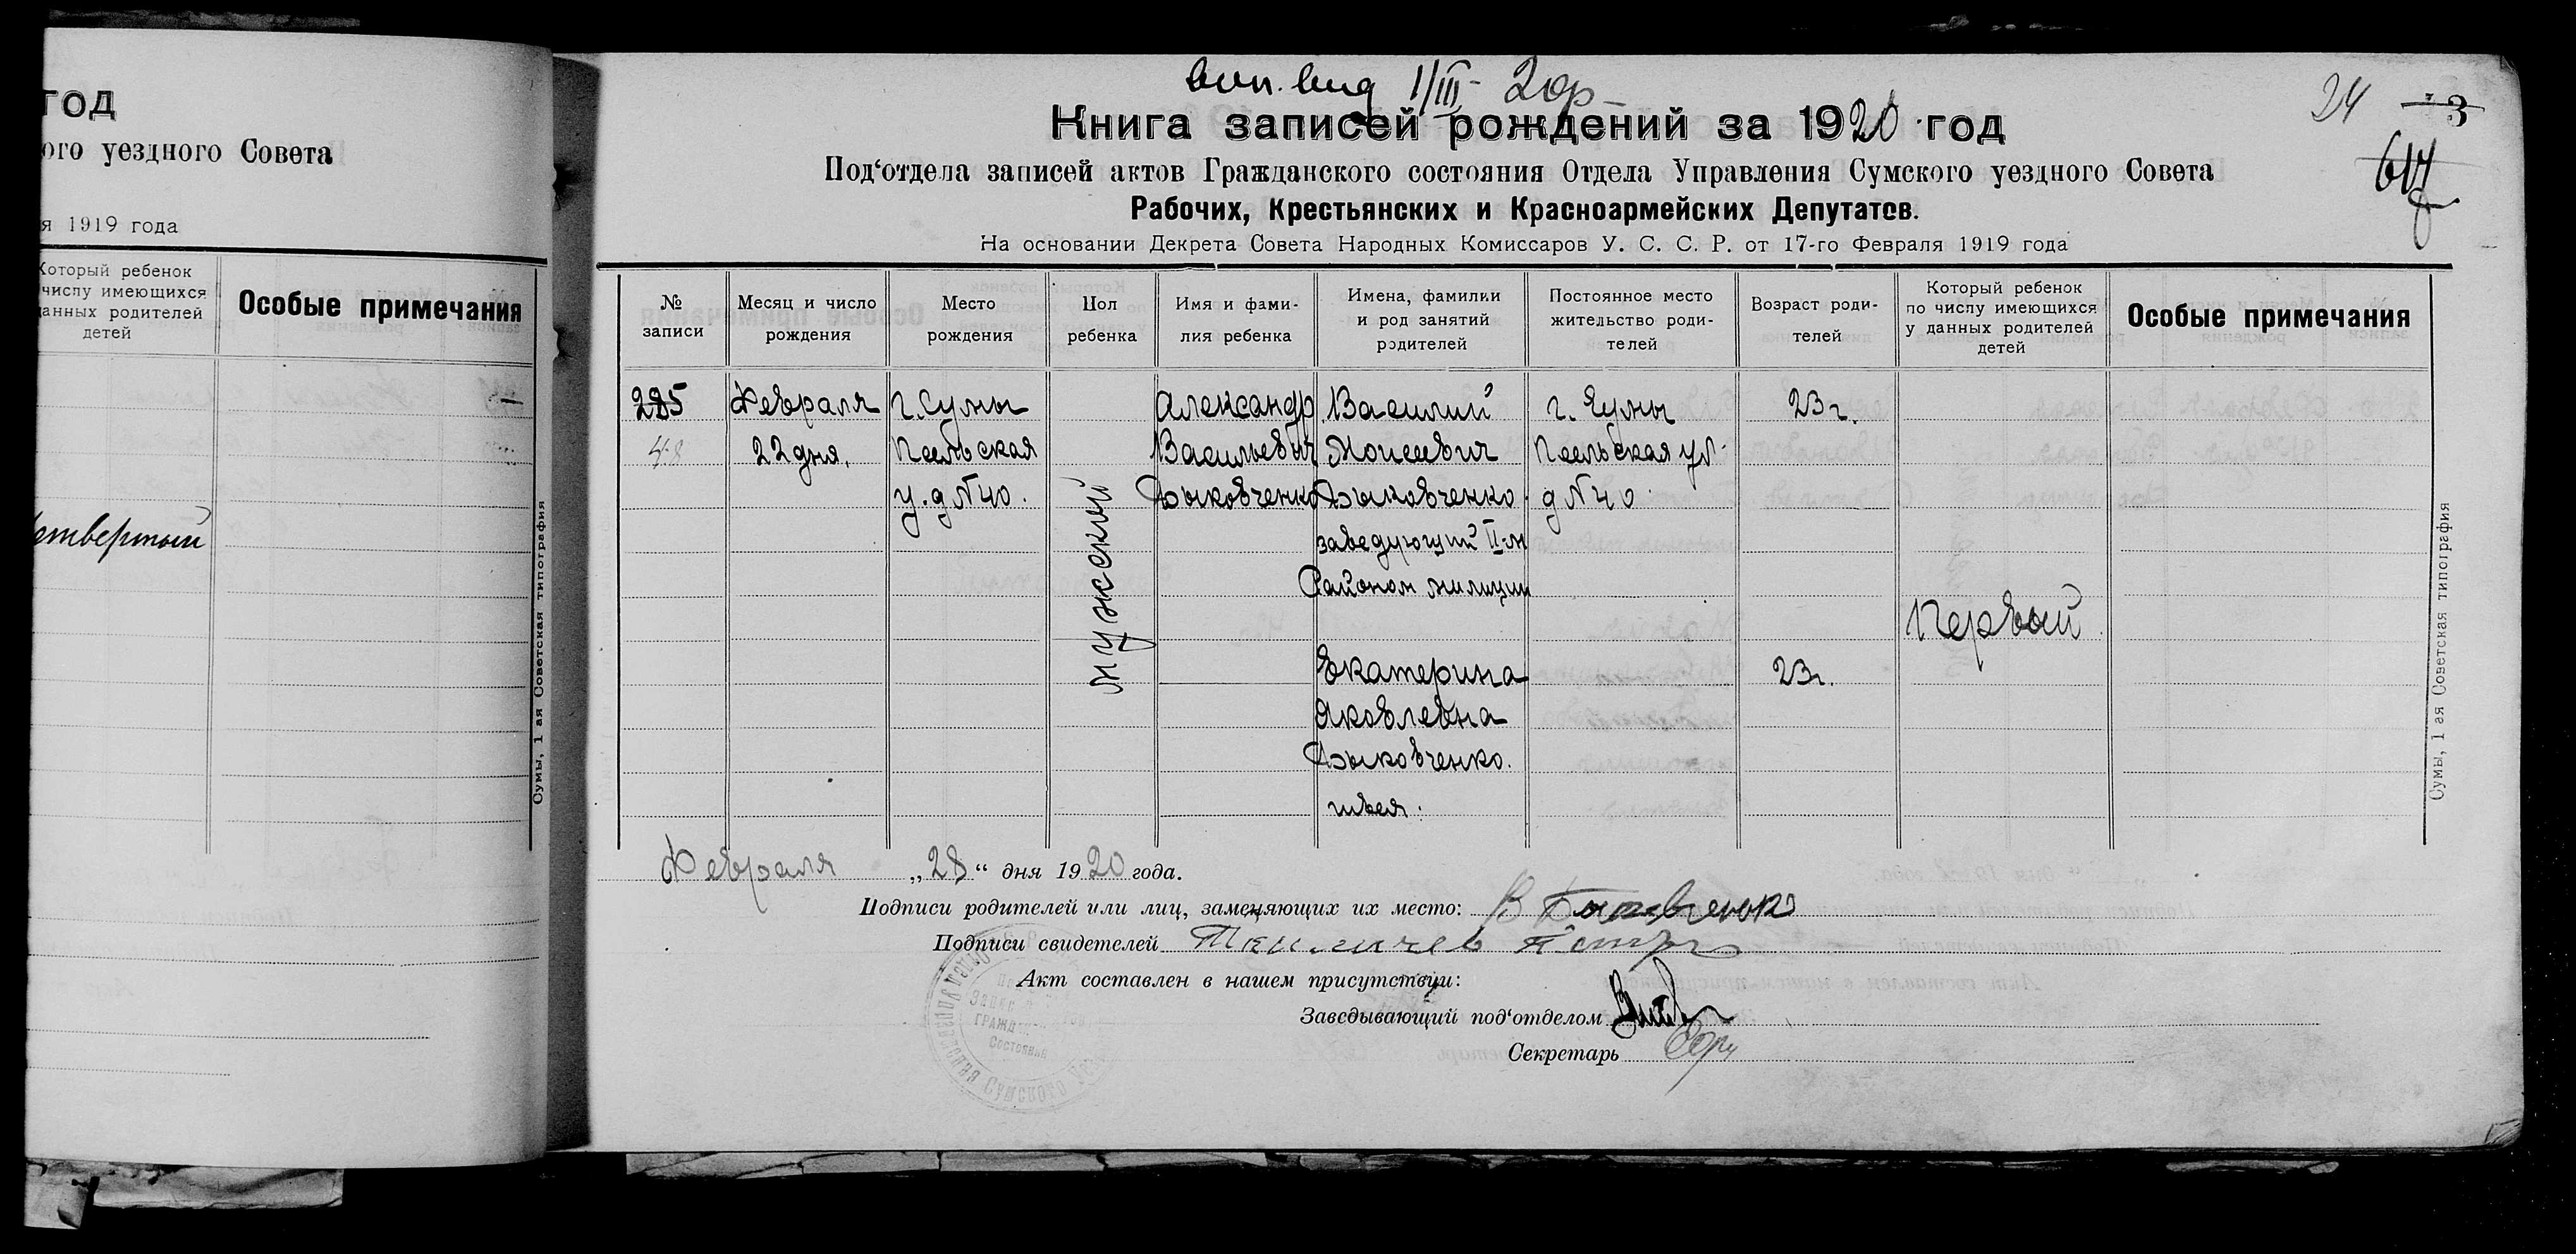 год
ого уездного Совета
я 1919 года
Который ребенок
числу имеющихся
данных родителей
детей
Особые примечания
етвертый
Сумы, 1 ая Советская типография
1/III- 20р
24
3
614
Книга записей рождений за 1920 год
Под‘отдела записей актов Гражданского состояния Отдела Управления Сумского уездного Совета
Рабочих, Крестьянских и Красноармейских Депутатов.
На основании Декрета Совета Народных Комиссаров У. С. С. Р. от 17-го Февраля 1919 года
№
записи
Месяц и число
рождения
Место
рождения
Пол
ребенка
Имя и фами-
лия ребенка
Имена, фамилии
и род занятий
родителей
Постоянное место
жительство роди-
телей
Возраст роди-
телей
Который ребенок
по числу имеющихся
у данных родителей
детей
Особые примечания
285
48
Февраля
22 дня,
г. Сумы
Псельская
у. д № 40.
мужеский
Александр
Васильевич
Быковченко
Василий
Моисеевич
Быковченко
заведующий II-м
Районом милиции
Екатерина
Яковлевна
Быковченко.
швея.
г. Сумы
Псельская ул.
д № 40.
23 г.
23 г.
Первый
Сумы, 1 ая Советская типография
Февраля „28“ дня 1920 года.
Подписи родителей или лиц, заменяющих их место: В Быковченко
Подписи свидетелей
Акт составлен в нашем присутствии:
Заведывающий под‘отделом
Секретарь
Сумского